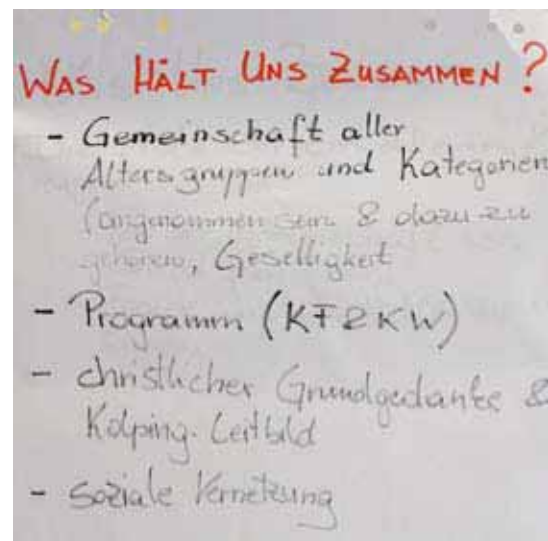 WAS HÄLT UNS ZUSAMMEN?
- Gemeinschaft aller
Altersgruppen und Kategorien
(angenommen sein & dazu zu
gehören, Geselligkeit
- Programm (KF & KW)
- christlicher Grundgedanke &
Kolping-Leitbild
- soziale Vernetzung